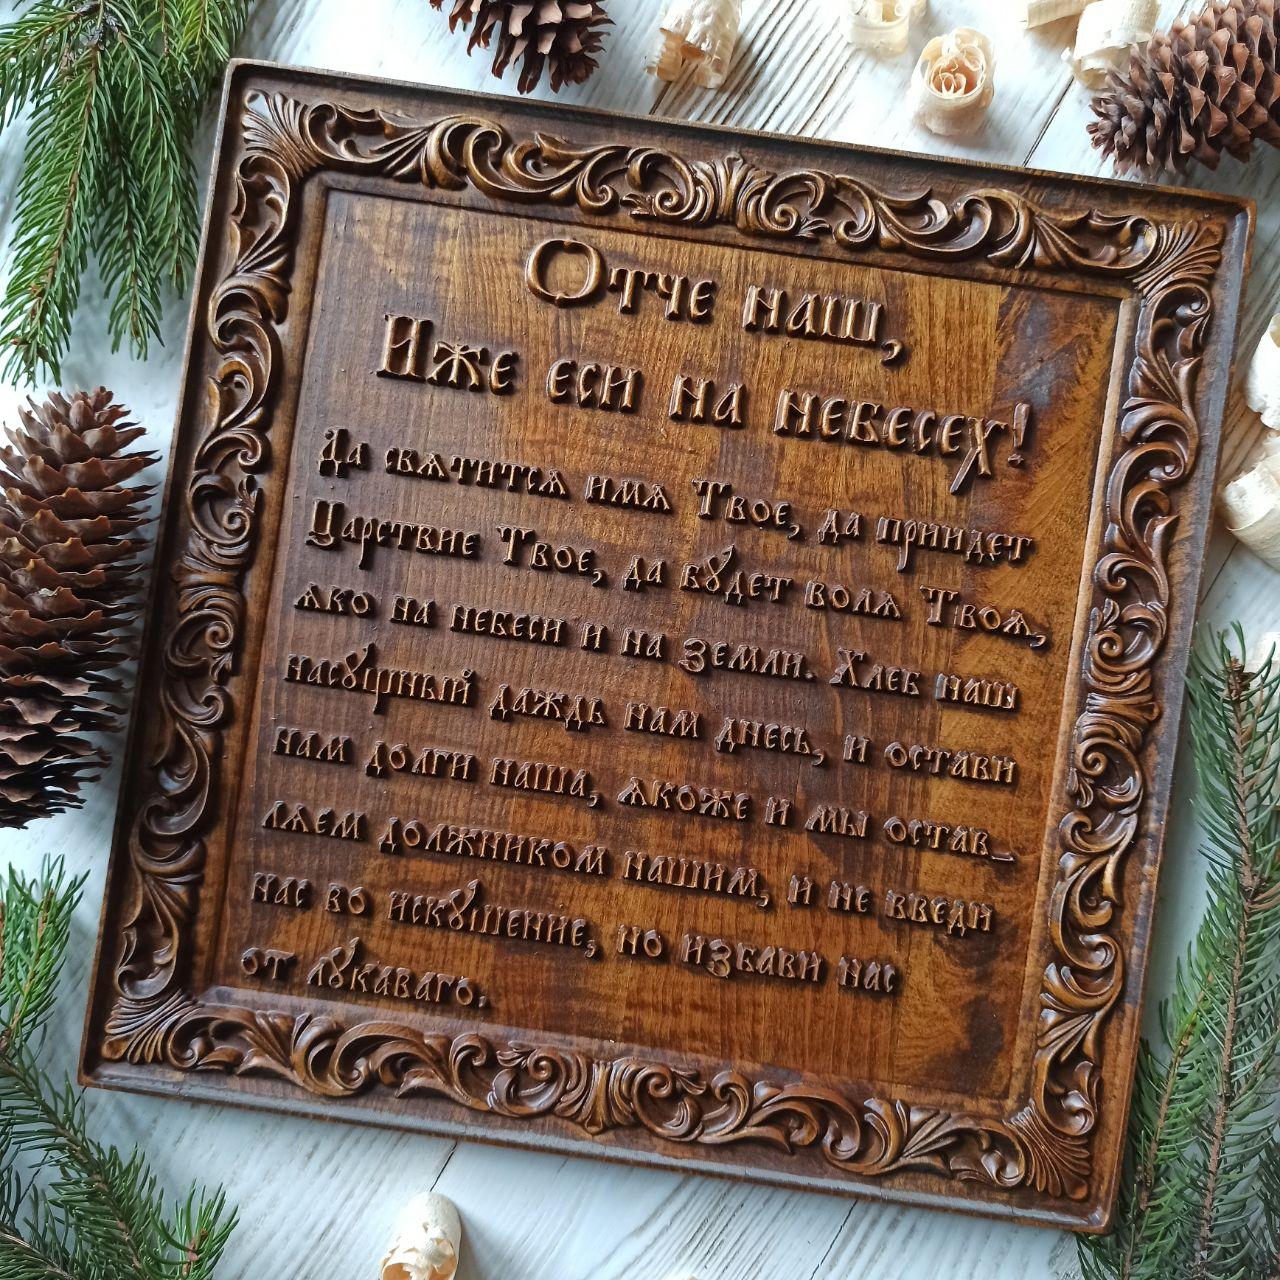 Отче наш,
Иже еси на небесех!
Да свѧтитсѧ имѧ Твое, да приидет
Царствие Твое, да бꙋдет волѧ Твоѧ,
ѧко на небеси и на земли. Хлеб наш
насꙋщный даждь нам днесь, и остави
нам долги наша, ѧкоже и мы остав_
лѧем должником нашим, и не введи
нас во искꙋшение, но избави нас
от лꙋкаваго.